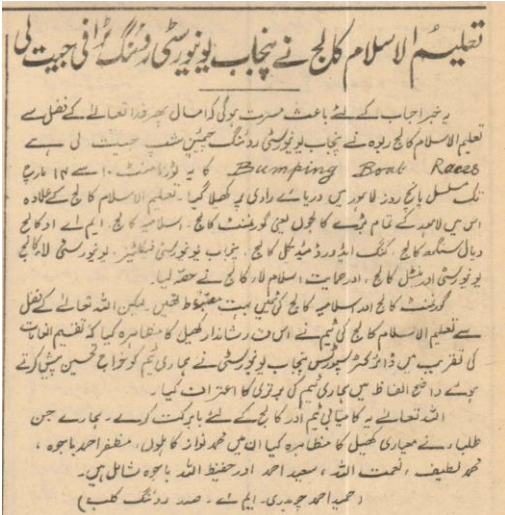 تعلیم الاسلام کالج نے پنجاب یونیورسٹی روئنگ ٹرافی جیت لی
یہ خبر احباب کے لئے باعث مسرت ہوگی کہ امسال پھر خدا تعالےٰ کے فضل سے
تعلیم الاسلام کالج ربوہ نے پنجاب یونیورسٹی روئنگ چیمپئن شپ جیت لی ہے
Bumping Boat Races کا یہ ٹورنامنٹ ۱۰ سے ۱۴ مارچ
تک مسلسل پانچ روز لاہور میں دریائے راوی پر کھیلا گیا۔ تعلیم الاسلام کالج کے علاوہ
اس میں لاہور کے تمام بڑے کالجوں یعنی گورنمنٹ کالج۔ اسلامیہ کالج۔ ایم اے او کالج
دیال سنگھ کالج، کنگ ایڈورڈ میڈیکل کالج، پنجاب یونیورسٹی فیکلٹیز۔ یونیورسٹی لاء کالج
یونیورسٹی اورینٹل کالج، اور حمایت اسلام لاء کالج نے حصہ لیا۔
گورنمنٹ کالج اور اسلامیہ کالج کی ٹیمیں بہت مضبوط تھیں۔ لیکن اللہ تعالےٰ کے فضل
سے تعلیم الاسلام کالج کی ٹیم نے اس قدر شاندار کھیل کا مظاہرہ کیا کہ تقسیم انعامات
کی تقریب میں ڈائرکٹر سپورٹس پنجاب یونیورسٹی نے ہماری ٹیم کو خراج تحسین پیش کرتے
ہوئے واضح الفاظ میں ہماری ٹیم کی برتری کا اعتراف کیا۔
اللہ تعالےٰ یہ کامیابی ٹیم اور کالج کے لئے بابرکت کرے۔ ہمارے جن
طلباء نے معیاری کھیل کا مظاہرہ کیا ان میں محمد نواز کاہلوں، مظفر احمد باجوہ،
محمد لطیف، نعمت اللہ، سعید احمد اور حفیظ اللہ باجوہ شامل ہیں۔
(حمید احمد چوہدری۔ ایم اے۔ صدر روئنگ کلب)